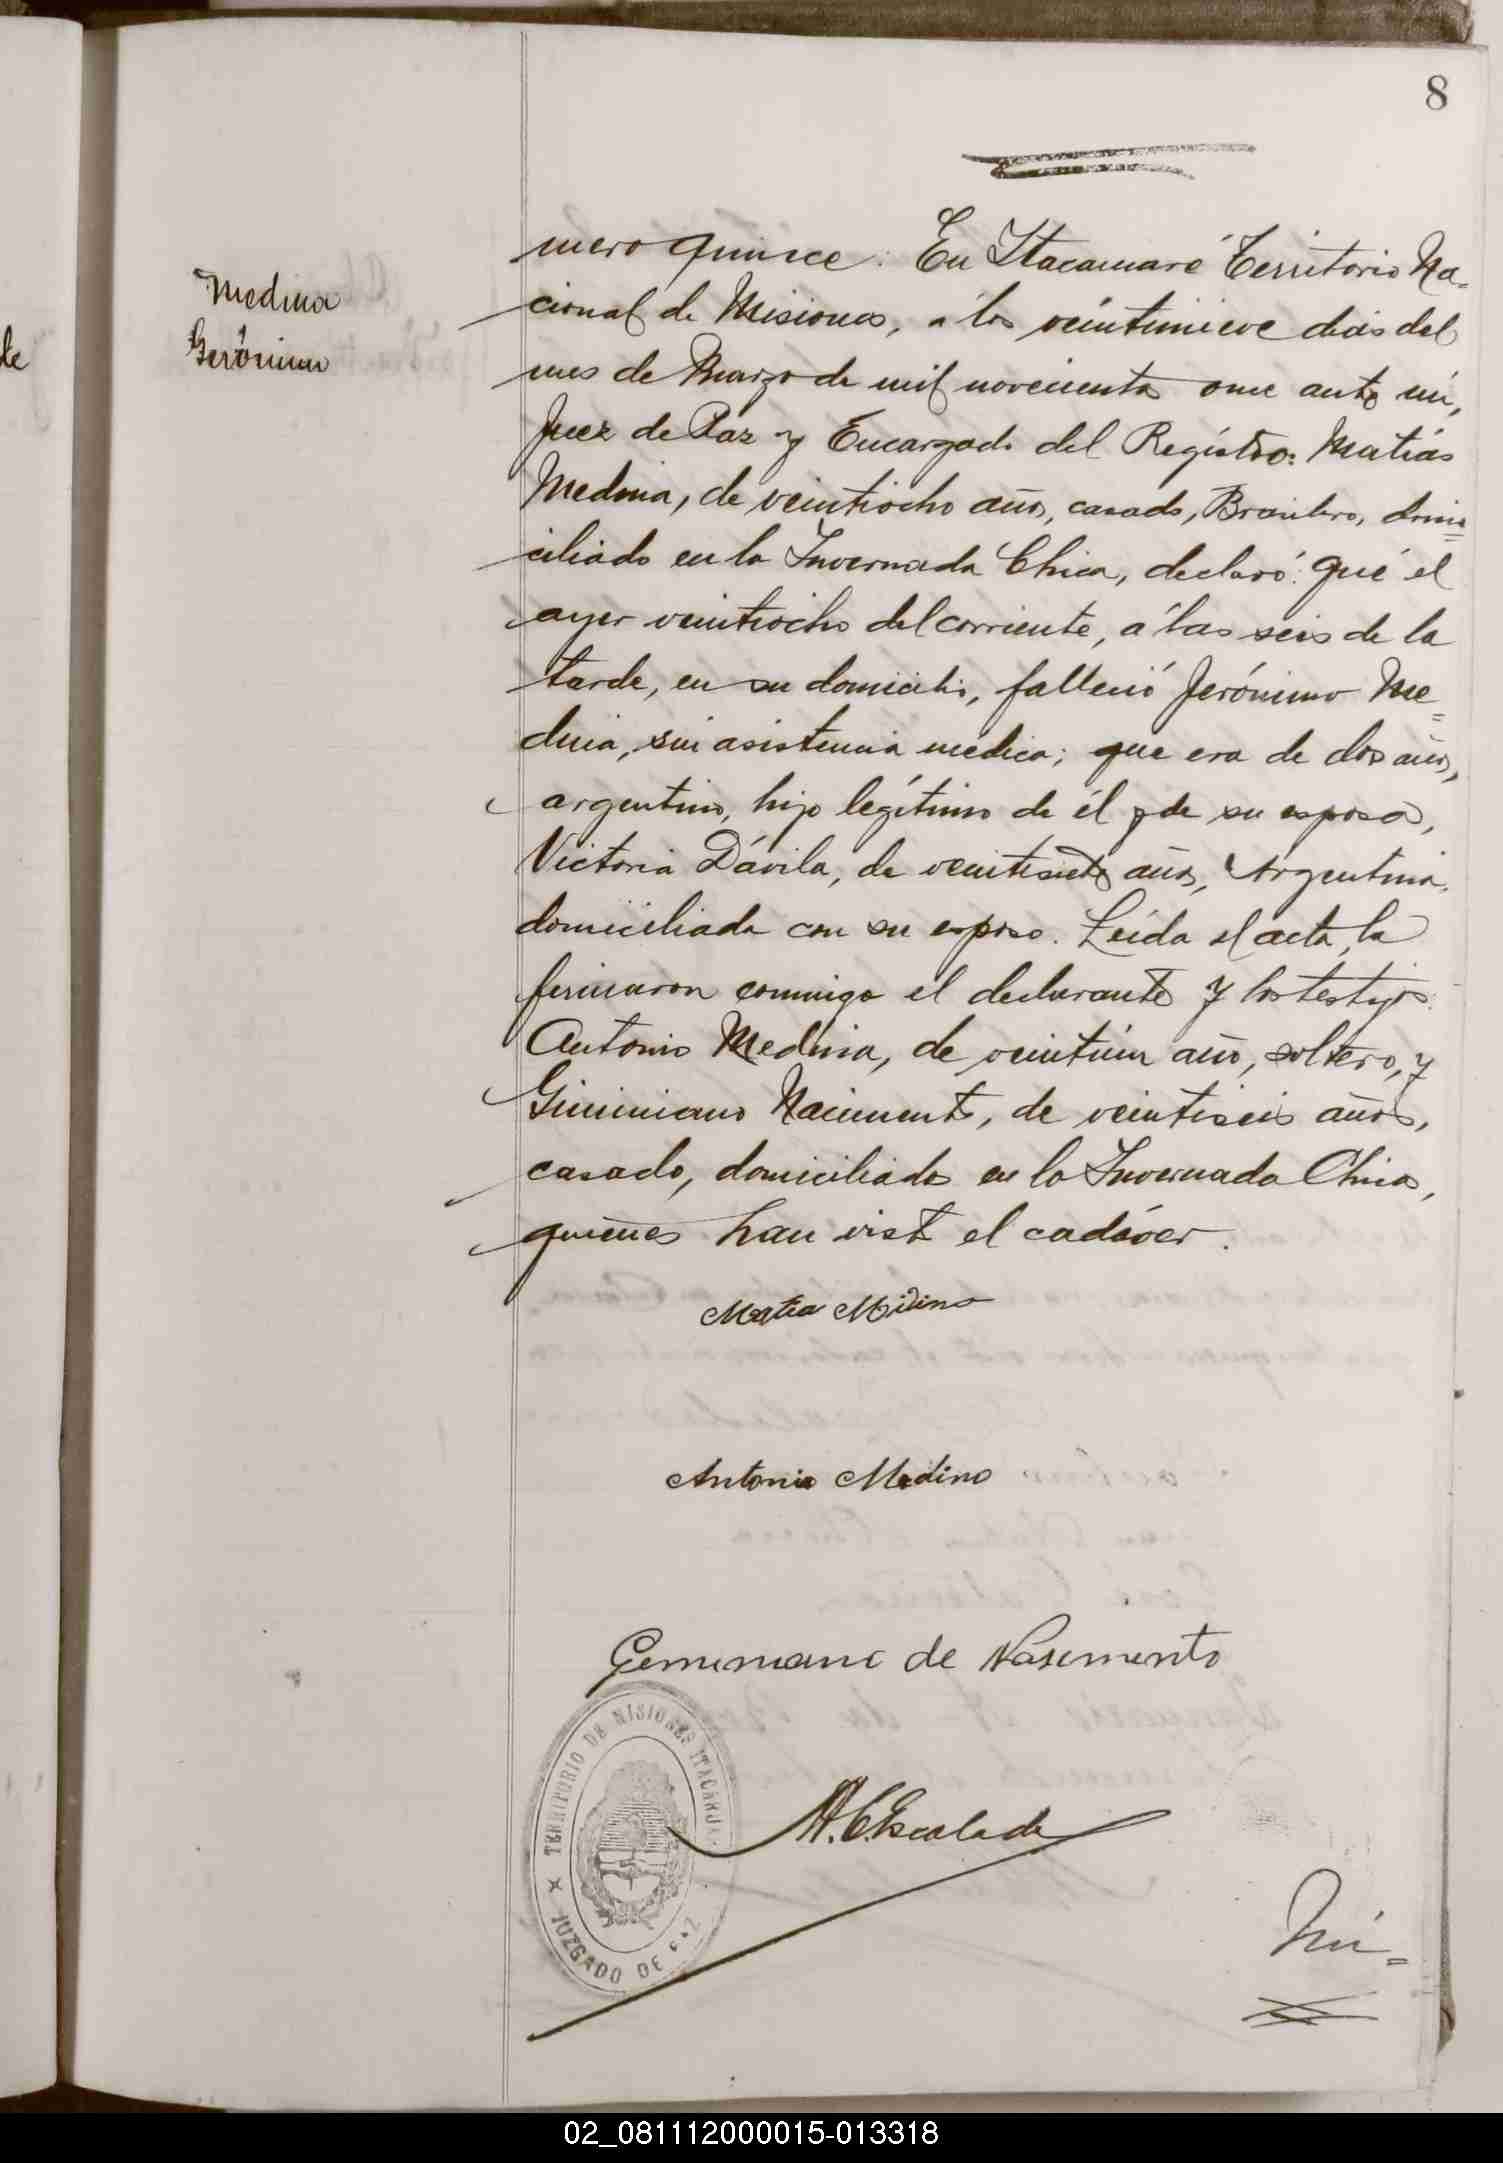 8
Medina
Gerónimo
de
mero quince. En Itacaruaré Territorio Na-
cional de Misiones, á los veintinueve dias del
mes de Marzo de mil novecientos once ante mi,
Juez de Paz y Encargado del Registro: Matías
Medina, de veintiocho años, casado, Brasilero, domi=
ciliado en la Invernada Chica, declaró: que el
ayer veintiocho del corriente, á las seis de la
tarde, en su domicilio, falleció Jerónimo Me=
dina, sin asistencia medica; que era de dos años,
argentino, hijo legítimo de él y de su esposa,
Victoria Dávila, de veintisiete años, Argentina,
domiciliada con su esposo. Leída el acta, la
firmaron conmigo el declarante y los testigos
Antonio Medina, de veintiún años, soltero, y
Giminiano Nacimento, de veintiseis años,
casado, domiciliados en la Invernada Chica,
quienes han visto el cadáver.
Matia Midina
Antonio Medino
Geminiano de Nasimento
TERRITORIO DE MISIONES ITACARUARE
JUZGADO DE PAZ
M. C. Escalada
Nú=
02_081112000015-013318